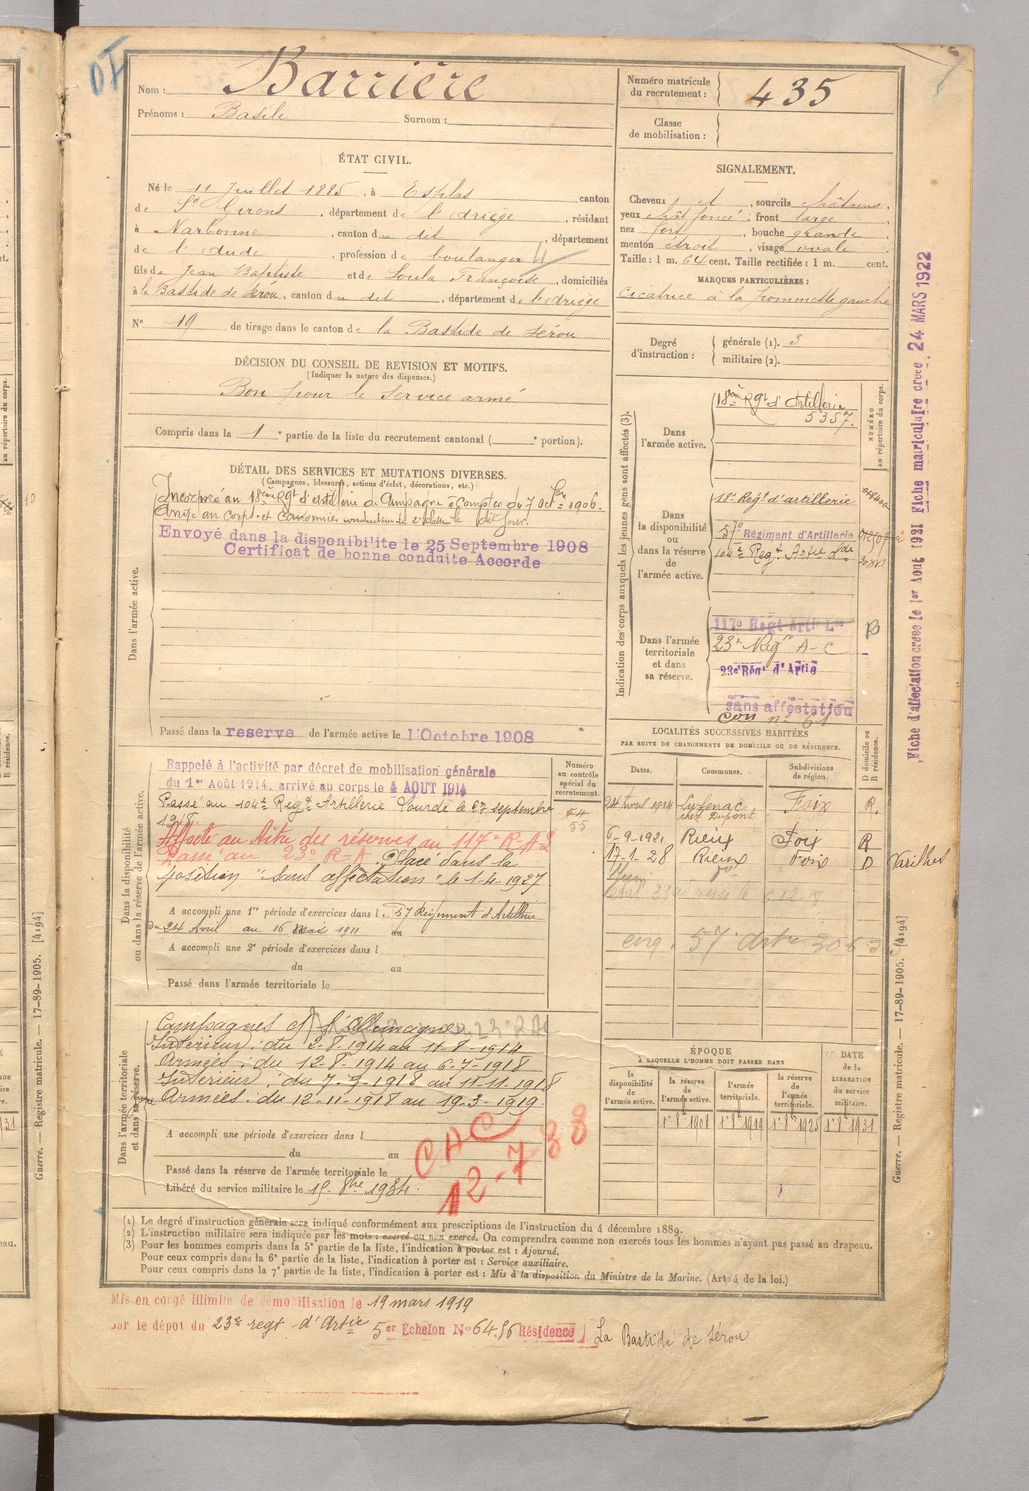 Nom : Barrière
Prénoms : Basile Surnom :
Numéro matricule
du recrutement : 435
Classe
de mobilisation :
ÉTAT CIVIL.
Né le 11 Juillet 1885, à Esplas canton
de St Girons, département de l'Ariège, résidant
à Narbonne, canton du dit, département
de l'Aude, profession de boulanger
fils de Jean Baptiste et de Soula Françoise, domiciliés
à la Bastide de Sérou, canton du dit, département de l'Ariège
N° 19 de tirage dans le canton de la Bastide de Sérou
SIGNALEMENT.
Cheveux et, sourcils châtains
yeux chât foncé ; front large
nez fort, bouche grande
menton étroit, visage ovale
Taille : 1 m. 64 cent. Taille rectifiée : 1 m. cent.
MARQUES PARTICULIÈRES :
Cicatrice à la pommette gauche
Degré
d'instruction :
générale (1). 3
militaire (2).
DÉCISION DU CONSEIL DE REVISION ET MOTIFS.
(Indiquer la nature des dispenses.)
Bon pour le service armé
Compris dans la 1e partie de la liste du recrutement cantonal ( e portion).
DÉTAIL DES SERVICES ET MUTATIONS DIVERSES.
(Campagnes, blessures, actions d'éclat, décorations, etc.)
Dans l'armée active.
Incorporé au 18eme Rgt d'artillerie de Campagne à Compter du 7 Octobre 1906.
Arrivé au Corps et Canonnier conducteur de 2e classe le dit jour.
Envoyé dans la disponibilite le 25 Septembre 1908
Certificat de bonne conduite Accorde
Passé dans la reserve de l'armée active le 1 Octobre 1908
Indication des corps auxquels les jeunes gens sont affectés (3).
NUMÉRO
au répertoire du corps.
Dans
l'armée active.
18eme Rgt d'Artillerie
5357.
Dans
la disponibilité
ou
dans la réserve
de
l'armée active.
18e Regt d'artillerie
57e Régiment d'Artillerie
104e Regt Artie Lde
Dans l'armée
territoriale
et dans
sa réserve.
117e Regt Artie Lde
23e Regt A-C
23e Régt d'Artie
sans affectation
Con n° 61
Dans la disponibilité
ou dans la réserve de l'armée active.
Numéro
au contrôle
spécial du
recrutement.
Rappelé à l'activité par décret de mobilisation générale
du 1er Août 1914, arrivé au corps le 4 AOUT 1914
Passé au 104e Regt Artillerie Lourde le 27 septembre
1918.
Affecté au titre des réserves au 117e R A L
Passé au 23e R-A. Placé dans la
position "sans affectation" le 1-4-1927
A accompli une 1re période d'exercices dans le 57 Régiment d'Artillerie
du 24 Avril au 16 Mai 1911
A accompli une 2e période d'exercices dans l
du au
Passé dans l'armée territoriale le
LOCALITÉS SUCCESSIVES HABITÉES
PAR SUITE DE CHANGEMENTS DE DOMICILE OU DE RÉSIDENCE.
Dates. Communes. Subdivisions
de région. D domicile ou
R résidence.
24 Avril 1914 Luzenac Foix R.
chez Dupont
6-9-1921 Rieux Foix R
17-1-28 Rieux Foix D Varilhes
Dans l'armée territoriale
et dans sa réserve.
Campagnes of l'Allemagne
Intérieur : du 2-8-1914 au 11-8-1914
Armées : du 12-8-1914 au 6-7-1918
Intérieur : du 7-7-1918 au 11-11-1918
Armées : du 12-11-1918 au 19-3-1919.
A accompli une période d'exercices dans l
du au
Passé dans la réserve de l'armée territoriale le
Libéré du service militaire le 15 8bre 1934.
CAC
12-7-38
ÉPOQUE
À LAQUELLE L'HOMME DOIT PASSER DANS
la
disponibilité
de
l'armée active. la réserve
de
l'armée active. l'armée
territoriale. la réserve
de
l'armée
territoriale. DATE
de la
LIBÉRATION
du service
militaire.
1er 8bre 1908 1er 8bre 1919 1er 8bre 1925 1er 8bre 1931
(1) Le degré d'instruction générale sera indiqué conformément aux prescriptions de l'instruction du 4 décembre 1889.
(2) L'instruction militaire sera indiquée par les mots : exercé ou non exercé. On comprendra comme non exercés tous les hommes n'ayant pas passé au drapeau.
(3) Pour les hommes compris dans la 5e partie de la liste, l'indication à porter est : Ajourné.
Pour ceux compris dans la 6e partie de la liste, l'indication à porter est : Service auxiliaire.
Pour ceux compris dans la 7e partie de la liste, l'indication à porter est : Mis à la disposition du Ministre de la Marine. (Art. 4 de la loi.)
Mis en congé illimité de démobilisation le 19 mars 1919
par le dépôt du 23e regt d'Artie 5er Echelon N° 64.86 Résidence La Bastide de Sérou
Fiche d'affectation créée le 1er Aout 1921 Fiche matriculaire créée 24 MARS 1922
Guerre. — Registre matricule. — 17-89-1905. [4194]
Guerre. — Registre matricule. — 17-89-1905. [4194]